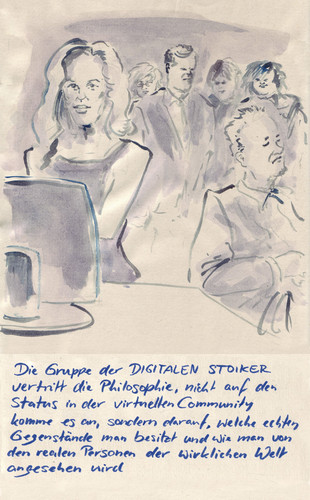 Die Gruppe der DIGITALEN STOIKER
vertritt die Philosophie, nicht auf den
Status in der virtuellen Community
komme es an, sondern darauf, welche echten
Gegenstände man besitzt und wie man von
den realen Personen der wirklichen Welt
angesehen wird